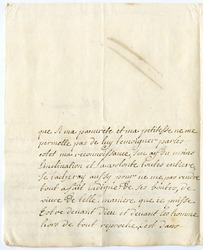 que si ma pauvreté et ma petitesse ne me
permette pas de luy temoigner par les
ma reconnoissance, j'en ay du moins
l'inclination et la volonté toutes entiere
Je tacheray aussy pour ne me pas rendre
tout a fait indigne de ses bontés, de
vivre de telle maniere que je puisse
Estre devant Dieu et devant les hommes
hors de tout reproche, c'est dans